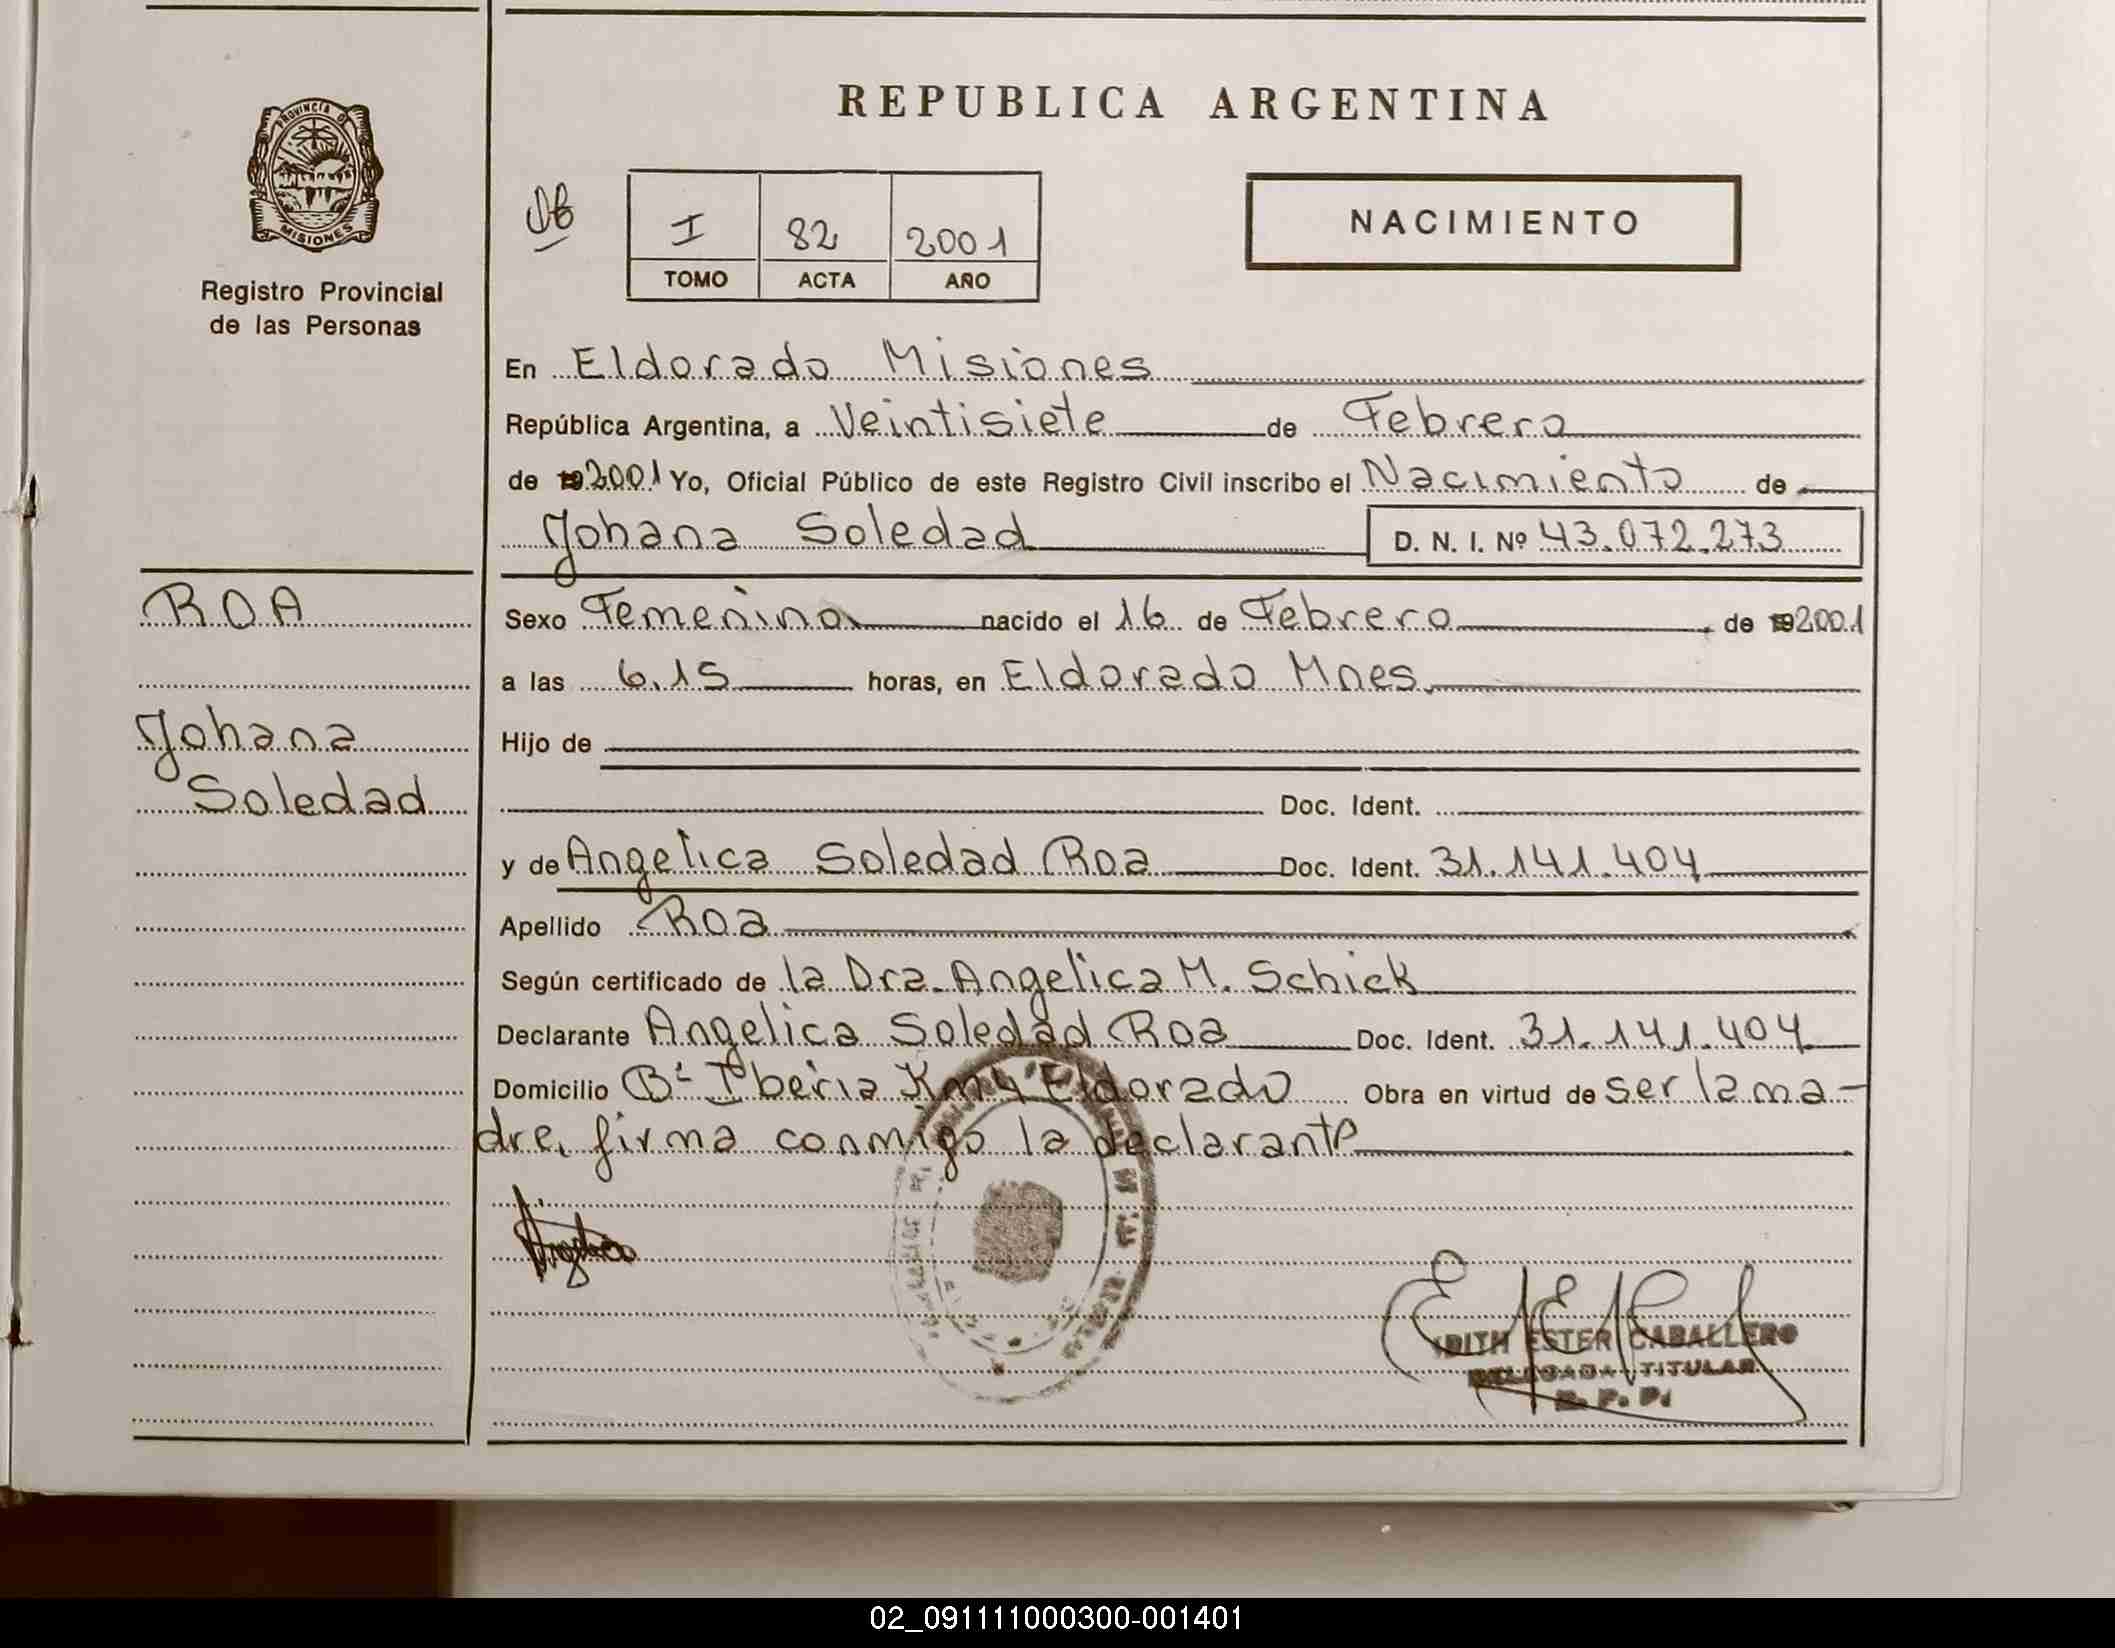 REPUBLICA ARGENTINA
PROVINCIA DE MISIONES
Registro Provincial
de las Personas
I 82 2001
TOMO ACTA AÑO
NACIMIENTO
En Eldorado Misiones
República Argentina, a Veintisiete de Febrero
de 19 2001 Yo, Oficial Público de este Registro Civil inscribo el Nacimiento de
Johana Soledad D. N. I. Nº 43.072.273
ROA
Johana
Soledad
Sexo Femenino nacido el 16 de Febrero de 19 2001
a las 6.15 horas, en Eldorado Mnes.
Hijo de
Doc. Ident.
y de Angelica Soledad Roa Doc. Ident. 31.141.404
Apellido Roa
Según certificado de la Dra. Angelica M. Schick
Declarante Angelica Soledad Roa Doc. Ident. 31.141.404
Domicilio Bº Iberia Km 4 Eldorado Obra en virtud de ser la ma-
dre, firma conmigo la declarante
Angelica
EDITH ESTER CABALLERO
DELEGADA TITULAR
R. P. P.
02_091111000300-001401